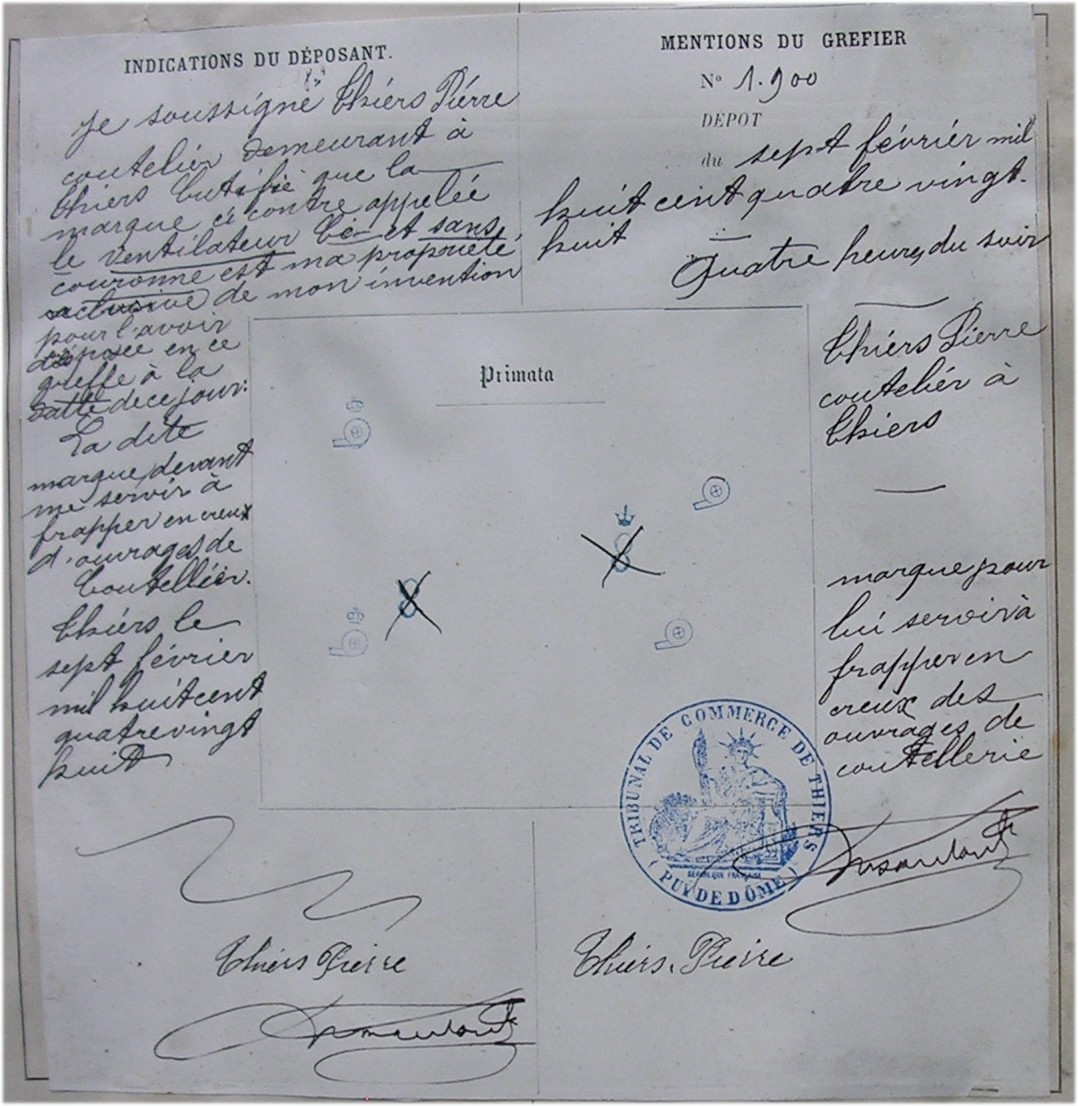 INDICATIONS DU DÉPOSANT.
Je soussigné Thiers Pierre
coutelier demeurant à
Thiers Certifie que la
marque ci contre appelée
le Ventilateur et sans
couronne est ma propriété
exclusive de mon invention
pour l'avoir
déposée en ce
greffe à la
datte de ce jour:
La dite
marque devant
me servir à
frapper en creux
d'ouvrages de
Coutellier.
Thiers le
sept février
mil huit cent
quatre vingt
huit
Thiers Pierre
MENTIONS DU GREFIER
N° 1.900
DÉPOT
du sept février mil
huit cent quatre vingt
huit
Quatre heures du soir
Thiers Pierre
coutelier à
Thiers
marque pour
lui servir à
frapper en
creux des
ouvrages de
coutellerie
Primata
TRIBUNAL DE COMMERCE DE THIERS
RÉPUBLIQUE FRANÇAISE
(PUY DE DÔME)
Thiers. Pierre